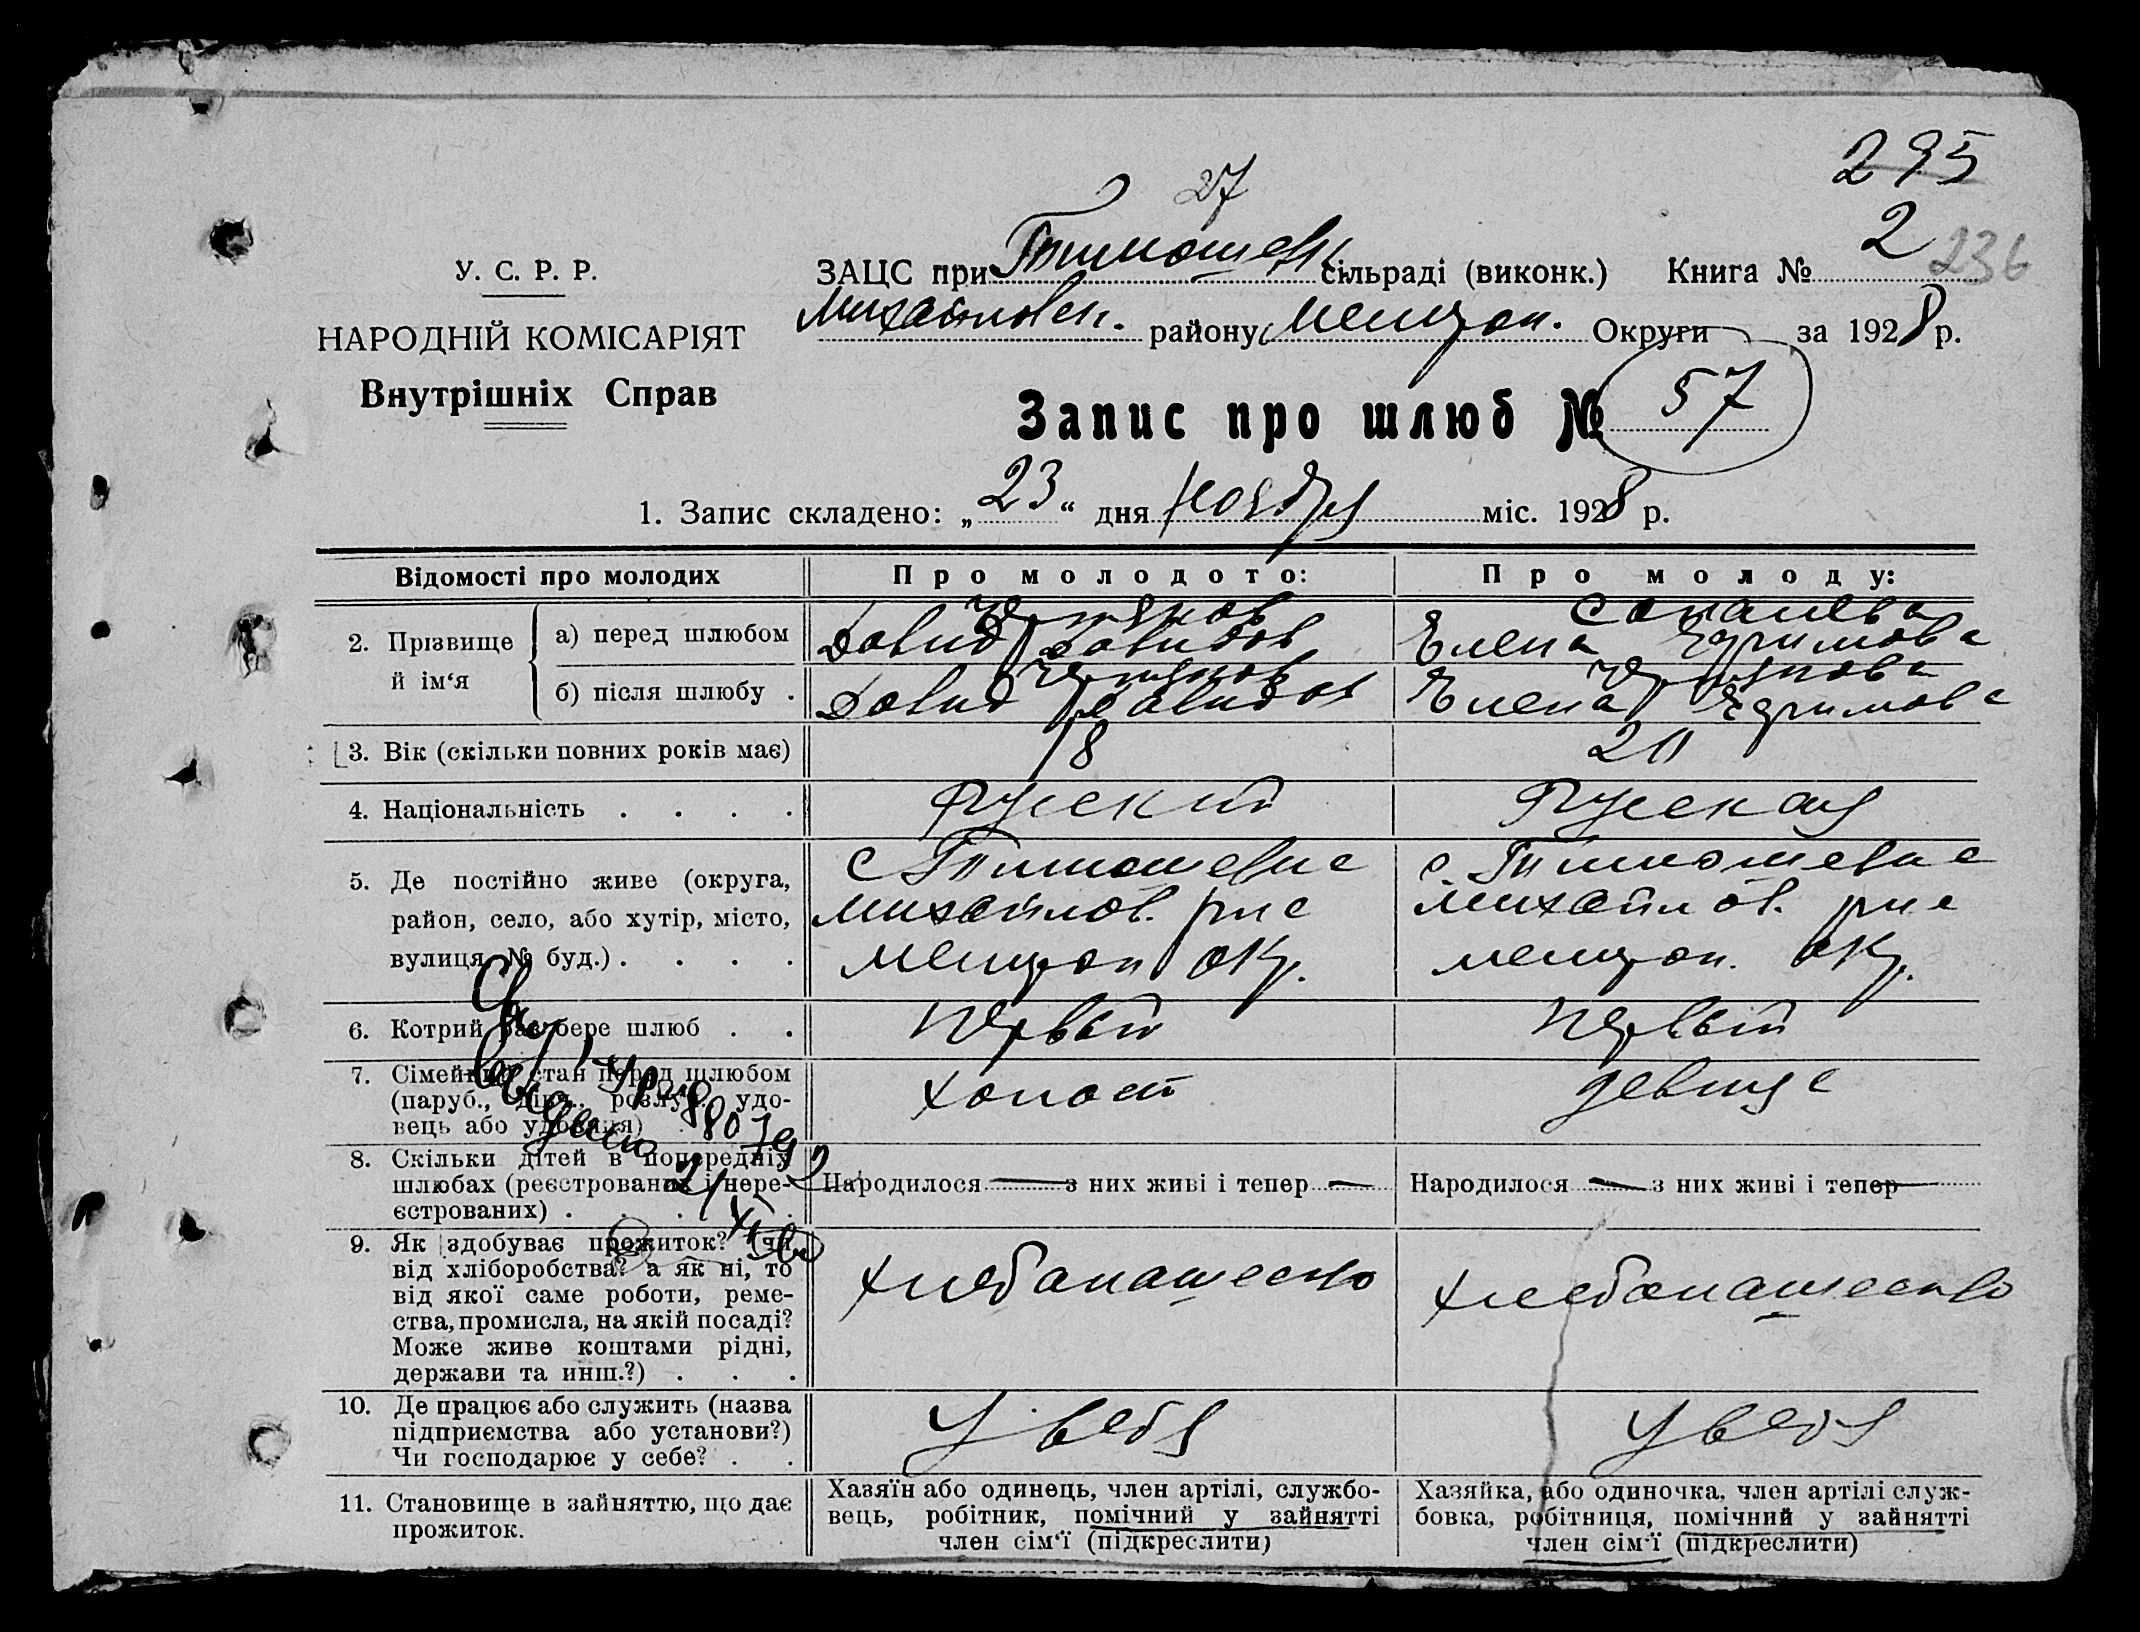 295
27
У. С. Р. Р.
НАРОДНІЙ КОМІСАРІЯТ
Внутрішніх Справ
ЗАЦС при Тимошевк. сільраді (виконк.) Книга № 2 236
Михайловск. району Мелитоп. Округи за 1928 р.
Запис про шлюб № 57
1. Запис складено: „23“ дня Ноября міс. 1928 р.
Відомості про молодих
Про молодого:
Про молоду:
2. Прізвище й ім‘я
а) перед шлюбом
Давид Давидов
Елена Ефимова
б) після шлюбу .
Давид Давидов
Елена Ефимова
3. Вік (скільки повних років має)
18
20
4. Національність . . . .
Руский
Руская
5. Де постійно живе (округа,
район, село, або хутір, місто,
вулиця, № буд.) . . . .
с Тимошевка
Михайлов. рна
Мелитоп окр.
с. Тимошевка
Михайлов. рна
Мелитоп. окр.
6. Котрий раз бере шлюб . .
Первый
Первый
7. Сімейний стан перед шлюбом
(паруб., дівч., розлуч., удо-
вець або удовиця)
холост
девица
8. Скільки дітей в попередніх
шлюбах (реєстрованих і нере-
єстрованих) . . . .
Народилося — з них живі і тепер —
Народилося — з них живі і тепер —
9. Як здобуває прожиток? (чи
від хліборобства? а як ні, то
від якої саме роботи, реме-
ства, промисла, на якій посаді?
Може живе коштами рідні,
держави та инш.?) . . .
хлебопашество
хлебопашество
10. Де працює або служить (назва
підприємства або установи?)
Чи господарює у себе? . .
У себя
У себя
11. Становище в зайняттю, що дає
прожиток.
Хазяїн або одинець, член артілі, службо-
вець, робітник, помічний у зайнятті
член сім‘ї (підкреслити)
Хазяйка, або одиночка, член артілі служ-
бовка, робітниця, помічний у зайнятті
член сім‘ї (підкреслити)